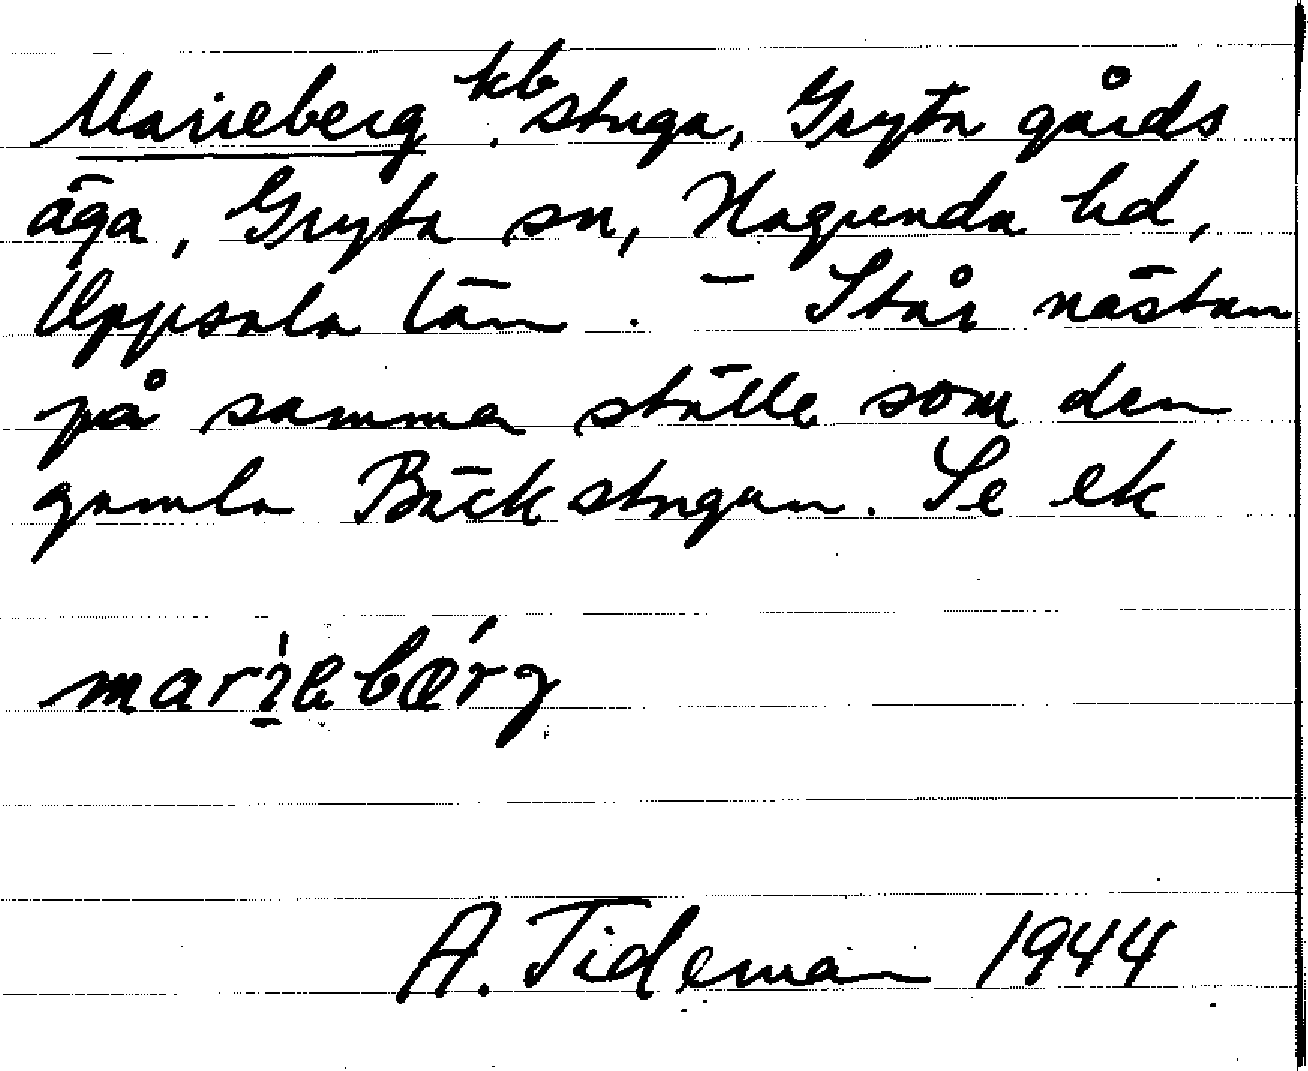 Marieberg kb. stuga, Gryta gårds
äga, Gryta sn, Hagunda hd,
Uppsala län. – Står nästan
på samma ställe som den
gamla Bäckstugan. Se ek
mariebærg
A. Tideman 1944